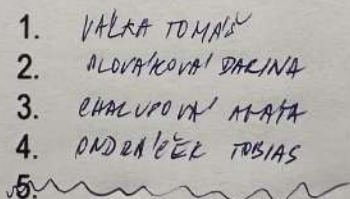 1. VALKA TOMÁŠ
2. SLOVÁKOVÁ DARINA
3. CHALUPOVÁ AGATA
4. ONDRÁČEK TOBIAS
5.